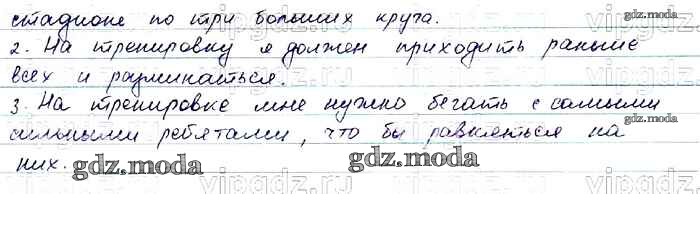 стадионе по три больших круга.
gdz.moda
2. На тренировку я должен приходить раньше
всех и разминаться.
vipgdz.ru vipgdz.ru vipgdz.ru
3. На тренировке мне нужно бегать с самыми
gdz.moda
сильными ребятами, что бы равняться на
них. gdz.moda gdz.moda
vipgdz.ru vipgdz.ru vipgdz.ru